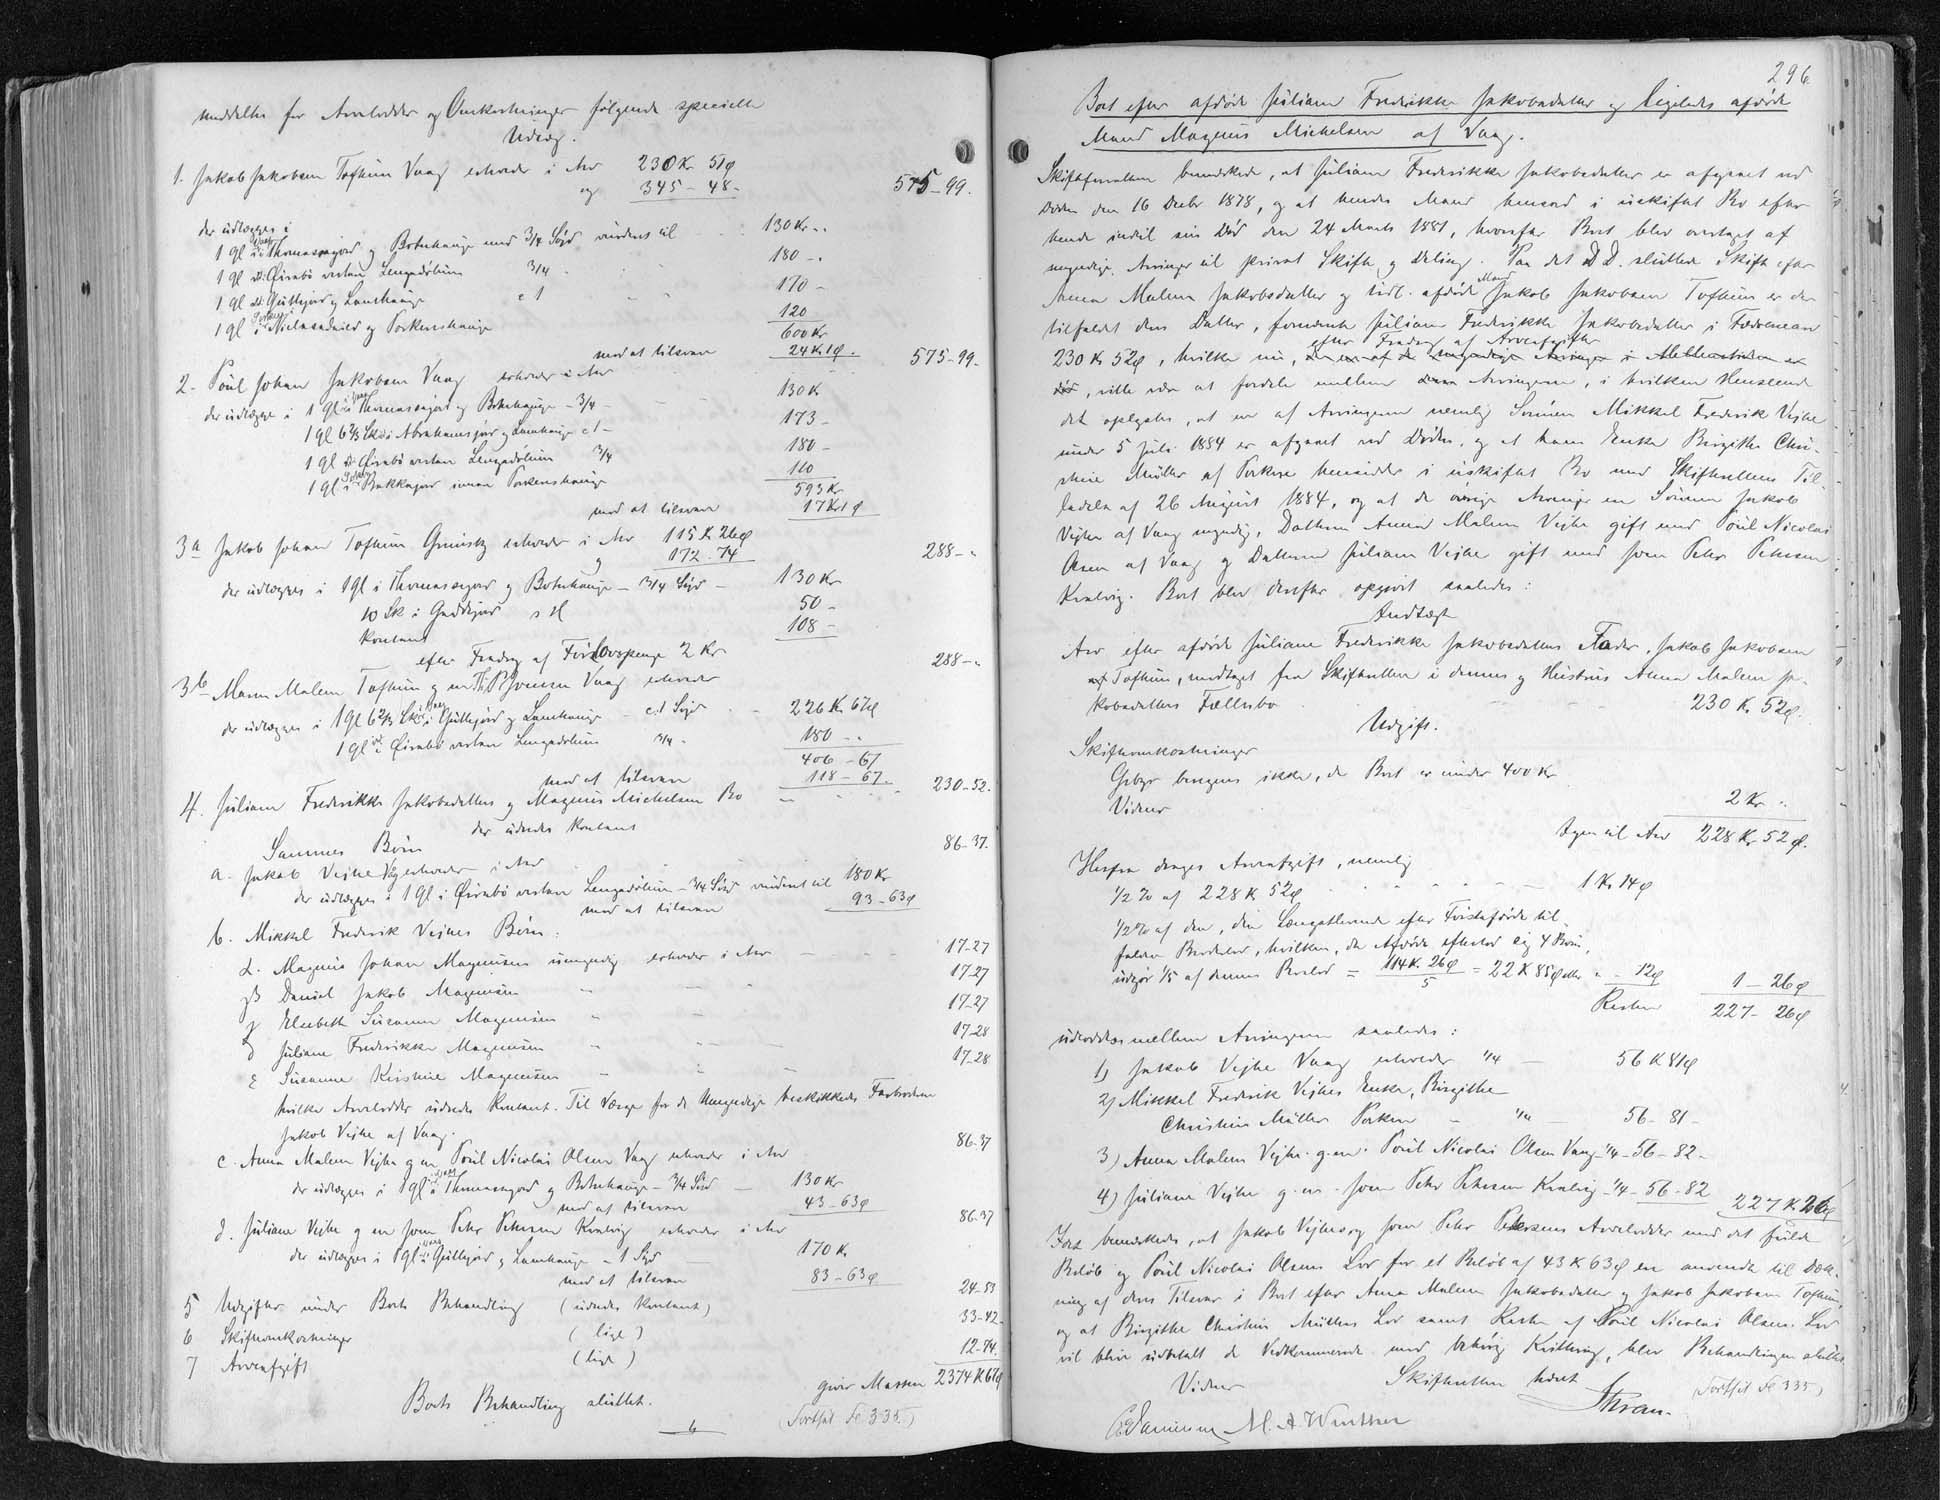 meddeltes for Arvelodder og Omkostninger følgende specielle
Udlæg.
1. Jakob Jakobsen Tofthum Vaag erholder i Arv 230 Kr 51 ø
og 345 - 48 - 575-99.
der udlægges i
1 gl i Thomassagjørd og Botnhauge med 3/4 Søjd vurderet til 130 Kr -
1 gl dt Øirabø vestan Lengadølum 3/4 180 -
1 gl dt Gullhjørd og Lamhauge c 1 170 -
1 gl i og Porkershauge 120
600 Kr
mod at tilsvare 24 K 1 ø.
2. Poul Johan Jakobsen Vaag erholder i Arv 575-99.
der udlægges i 1 gl i Thomassagjørd og Botnhauge - 3/4 - 130 K
1 gl 6 2/3 Sk i Abrahamsgjørd og Lamhauge c 1 - 173 -
1 gl dt Øirabø vestan Lengadølum 3/4 180 -
1 gl i Bakkagjørd innan Porkershauge 110
593 Kr
mod at tilsvare 17 Kr 1 ø
3a Jakob Johan Tofthum erholder i Arv 115 K 26 ø
og 172 - 74 288 - "
der udlægges i 1 gl i Thomassagjørd og Botnhauge - 3/4 Søjd - 130 Kr
10 Sk i 50 -
kontant 108 -
efter Fradrag af 2 Kr
288 - "
3b Malene Tofthum g. m. Vaag erholder
der udlægges i 1 gl 6 2/3 Sk i Gullhjørd og Lamhauge - c. 1 Søjd - 226 K 67 ø
1 gl dt Øirabø vestan Lengadølum 3/4 - 180 - "
406 - 67
mod at tilsvare 118 - 67
4. Juliane Frederikke Jakobsdatters og Magnus Michelsens Bo 230-52.
der udredes kontant
Sammes Børn
a. Jakob Vejhe Vaag erholder i Arv 86-37.
der udlægges i 1 gl i Øirabø vestan Lengadølum - 3/4 Søjd vurderet til 180 Kr
mod at tilsvare 93 - 63 ø
b. Mikkel Frederik Vejhes Børn:
α. Magnus Johan Magnussen umyndig erholder i Arv 17-27
β Daniel Jakob Magnussen 17-27
γ Elsebeth Susanne Magnussen 17-27
δ Juliane Frederikke Magnussen 17-28
ε Susanne Kristine Magnussen 17-28
hvilke Arvelodder udredes kontant. Til Værge for de Umyndige beskikkedes Farbroderen
Jakob Vejhe af Vaag.
c. Anna Malene Vejhe g m Poul Nicolai Olsen Vaag erholder i Arv 86-37
der udlægges i 1 gl i Thomassagjørd og Botnhauge - 3/4 Søjd - 130 Kr
mod at tilsvare 43 - 63 ø
d. Juliane Vejhe g m Joen Peter Petersen Kvalvig erholder i Arv 86-37
der udlægges i 1 gl i Gullhjørd og Lamhauge - 1 Søjd 170 K
mod at tilsvare 83 - 63 ø
5 Udgifter under Boets Behandling (udredes kontant)
6 Skifteomkostninger (lige) 33-42-
7 Arveafgift (lige) 12-74.
giver Massen 2374 K 67 ø
Boets Behandling sluttet. (Fortsat Fo 335.)
296
Boet efter afdøde Juliane Frederikke Jakobsdatter og ligeledes afdøde
Mand Magnus Michelsen af Vaag.
Skifteforvalteren bemærkede, at Juliane Frederikke Jakobsdatter er afgaaet ved
Døden den 16 Decbr 1878, og at hendes Mand hensad i uskiftet Bo efter
hende indtil sin Død den 24 Marts 1881, hvorefter Boet blev overtaget af
myndige Arvinger til privat Skifte og Deling. Paa det D.D. sluttede Skifte efter
Anna Malene Jakobsdatter og tidl. afdøde Mand Jakob Jakobsen Tofthum er der
tilfaldet dens Datter, fornævnte Juliane Frederikke Jakobsdatter i Fædrenearv
230 K 52 ø, hvilke nu, efter Fradrag af Arveafgifter
, ville være at fordele mellem Arvingerne, i hvilken Henseende
det oplystes, at en af Arvingerne nemlig Sønnen Mikkel Frederik Vejhe
under 5 Juli 1884 er afgaaet ved Døden, og at hans Enke Birgithe Chri-
stine Müller af Porkere hensidder i uskiftet Bo med Skifterettens Til-
ladelse af 26 August 1884, og at de øvrige Arvinger er Sønnen Jakob
Vejhe af Vaag myndig, Datteren Anna Malene Vejhe gift med Poul Nicolai
Olsen af Vaag og Datteren Juliane Vejhe gift med Joen Peter Petersen
Kvalvig. Boet blev derefter opgjort saaledes:
Indtægt
Arv efter afdøde Juliane Frederikke Jakobsdatters Fader, Jakob Jakobsen
af Tofthum, modtaget fra Skifteretten i dennes og Hustrus Anna Malene Ja-
kobsdatters Fællesbo 230 K. 52 ø.
Udgift.
Skifteomkostninger
Gebyr beregnes ikke, da Boet er under 400 Kr
Vidner 2 Kr "
Igjen til Arv 228 Kr 52 ø.
Herfra drages Arveafgift, nemlig
1/2 % af 228 K 52 ø 1 Kr 14 ø
1/2 % af den, den Længstlevende efter Førstafdøde til-
faldne Broderlod, hvilken, da Afdøde efterlod sig 4 Børn,
udgør 1/5 af dennes Boslod = 114 K. 26 ø / 5 = 22 K 85 ø eller " - 12 ø 1 - 26 ø
Resten 227 - 26 ø
udloddes mellem Arvingerne saaledes:
1) Jakob Vejhe Vaag erholder 1/4 - 56 K 81 ø
2) Mikkel Frederik Vejhes Enke, Birgithe
Christine Müller Porkere - 1/4 - 56 - 81 -
3) Anna Malene Vejhe g. m. Poul Nicolai Olsen Vaag - 1/4 - 56 - 82 -
4) Juliane Vejhe g. m. Joen Peter Petersen Kvalvig - 1/4 - 56 - 82 227 K 26 ø
bemærkedes, at Jakob Vejhes og Joen Peter Petersens Arvelodder med det fulde
Beløb og Poul Nicolai Olsens Lod for et Beløb af 43 K 63 ø er anvendt til Dæk-
ning af deres Tilsvar i Boet efter Anna Malene Jakobsdatter og Jakob Jakobsen Tofthum,
og at Birgithe Christine Müllers Lod samt Resten af Poul Nicolai Olsens Lod
vil blive udbetalt de Vedkommende mod behørig Kvittering, blev Behandlingen sluttet.
Skifteretten hævet (Fortsat Fo 335)
Vidner
M. A. Winther